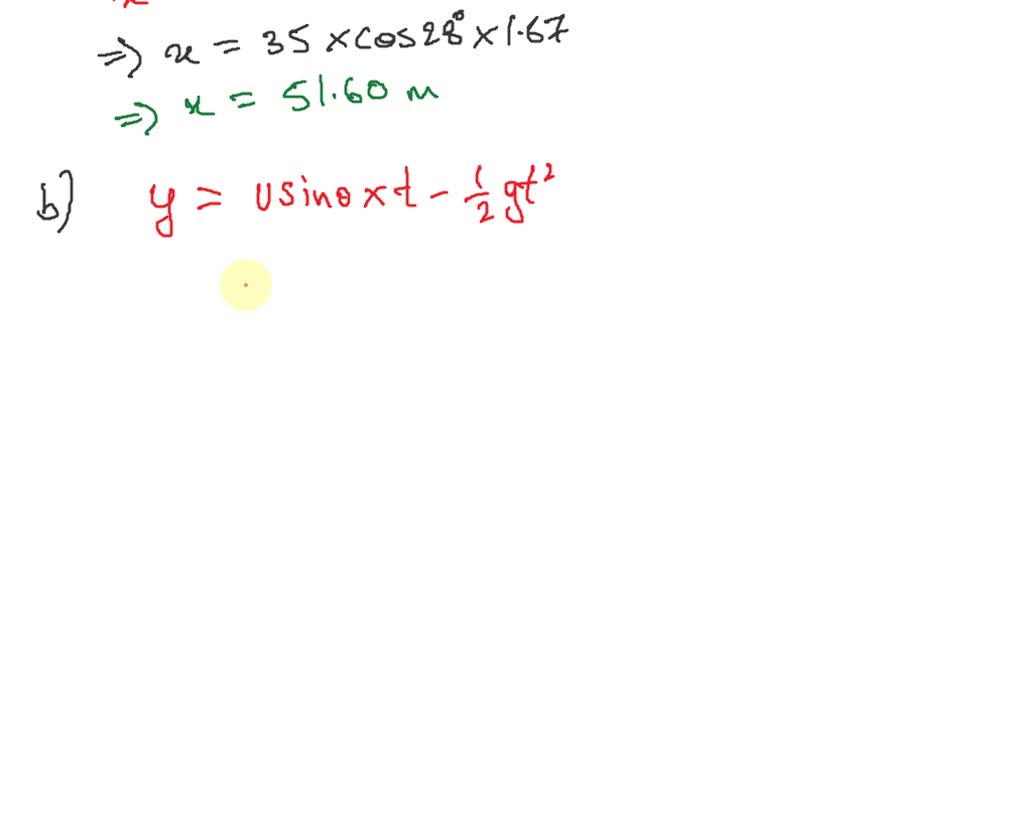 ⇒ x = 35 × cos 28° × 1.67
⇒ x = 51.60 m
b) y = u sin θ × t - 1/2 gt²